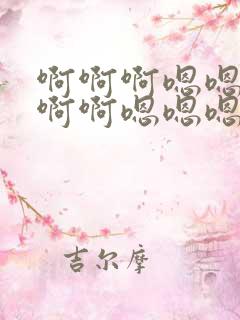 啊啊啊嗯嗯
啊啊嗯嗯嗯
吉尔摩